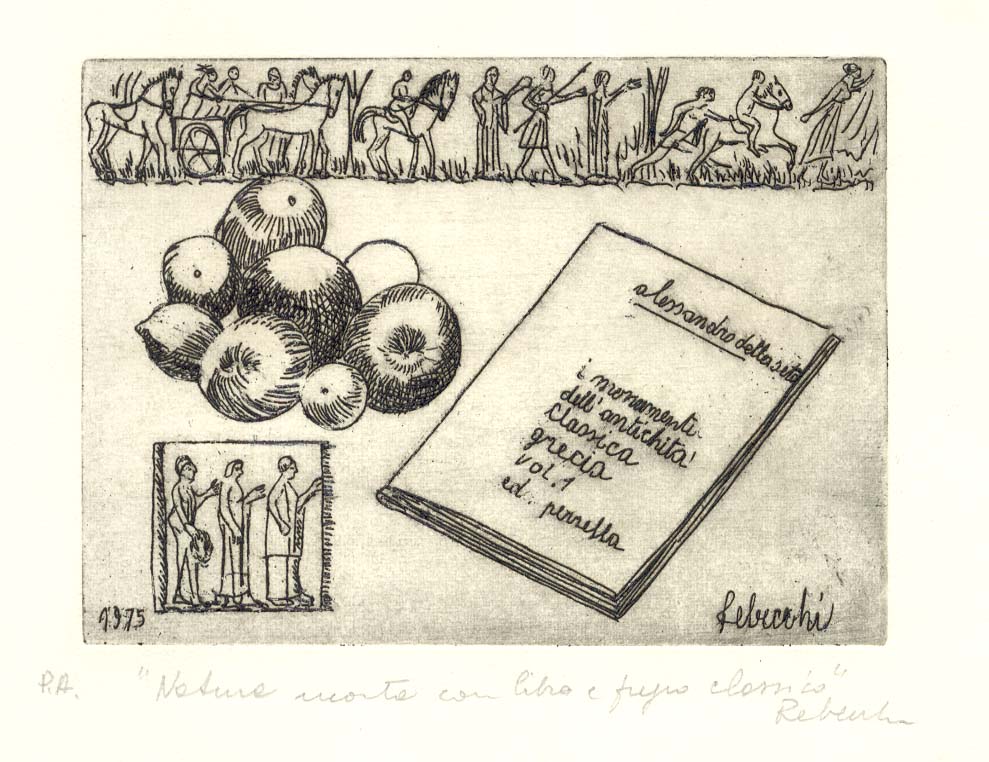 alessandro della seta
i monumenti
dell'antichità
classica
grecia
vol. 1
ed. perrella
1975
Rebecchi
P.A. "Natura morta con libro e fregio classico"